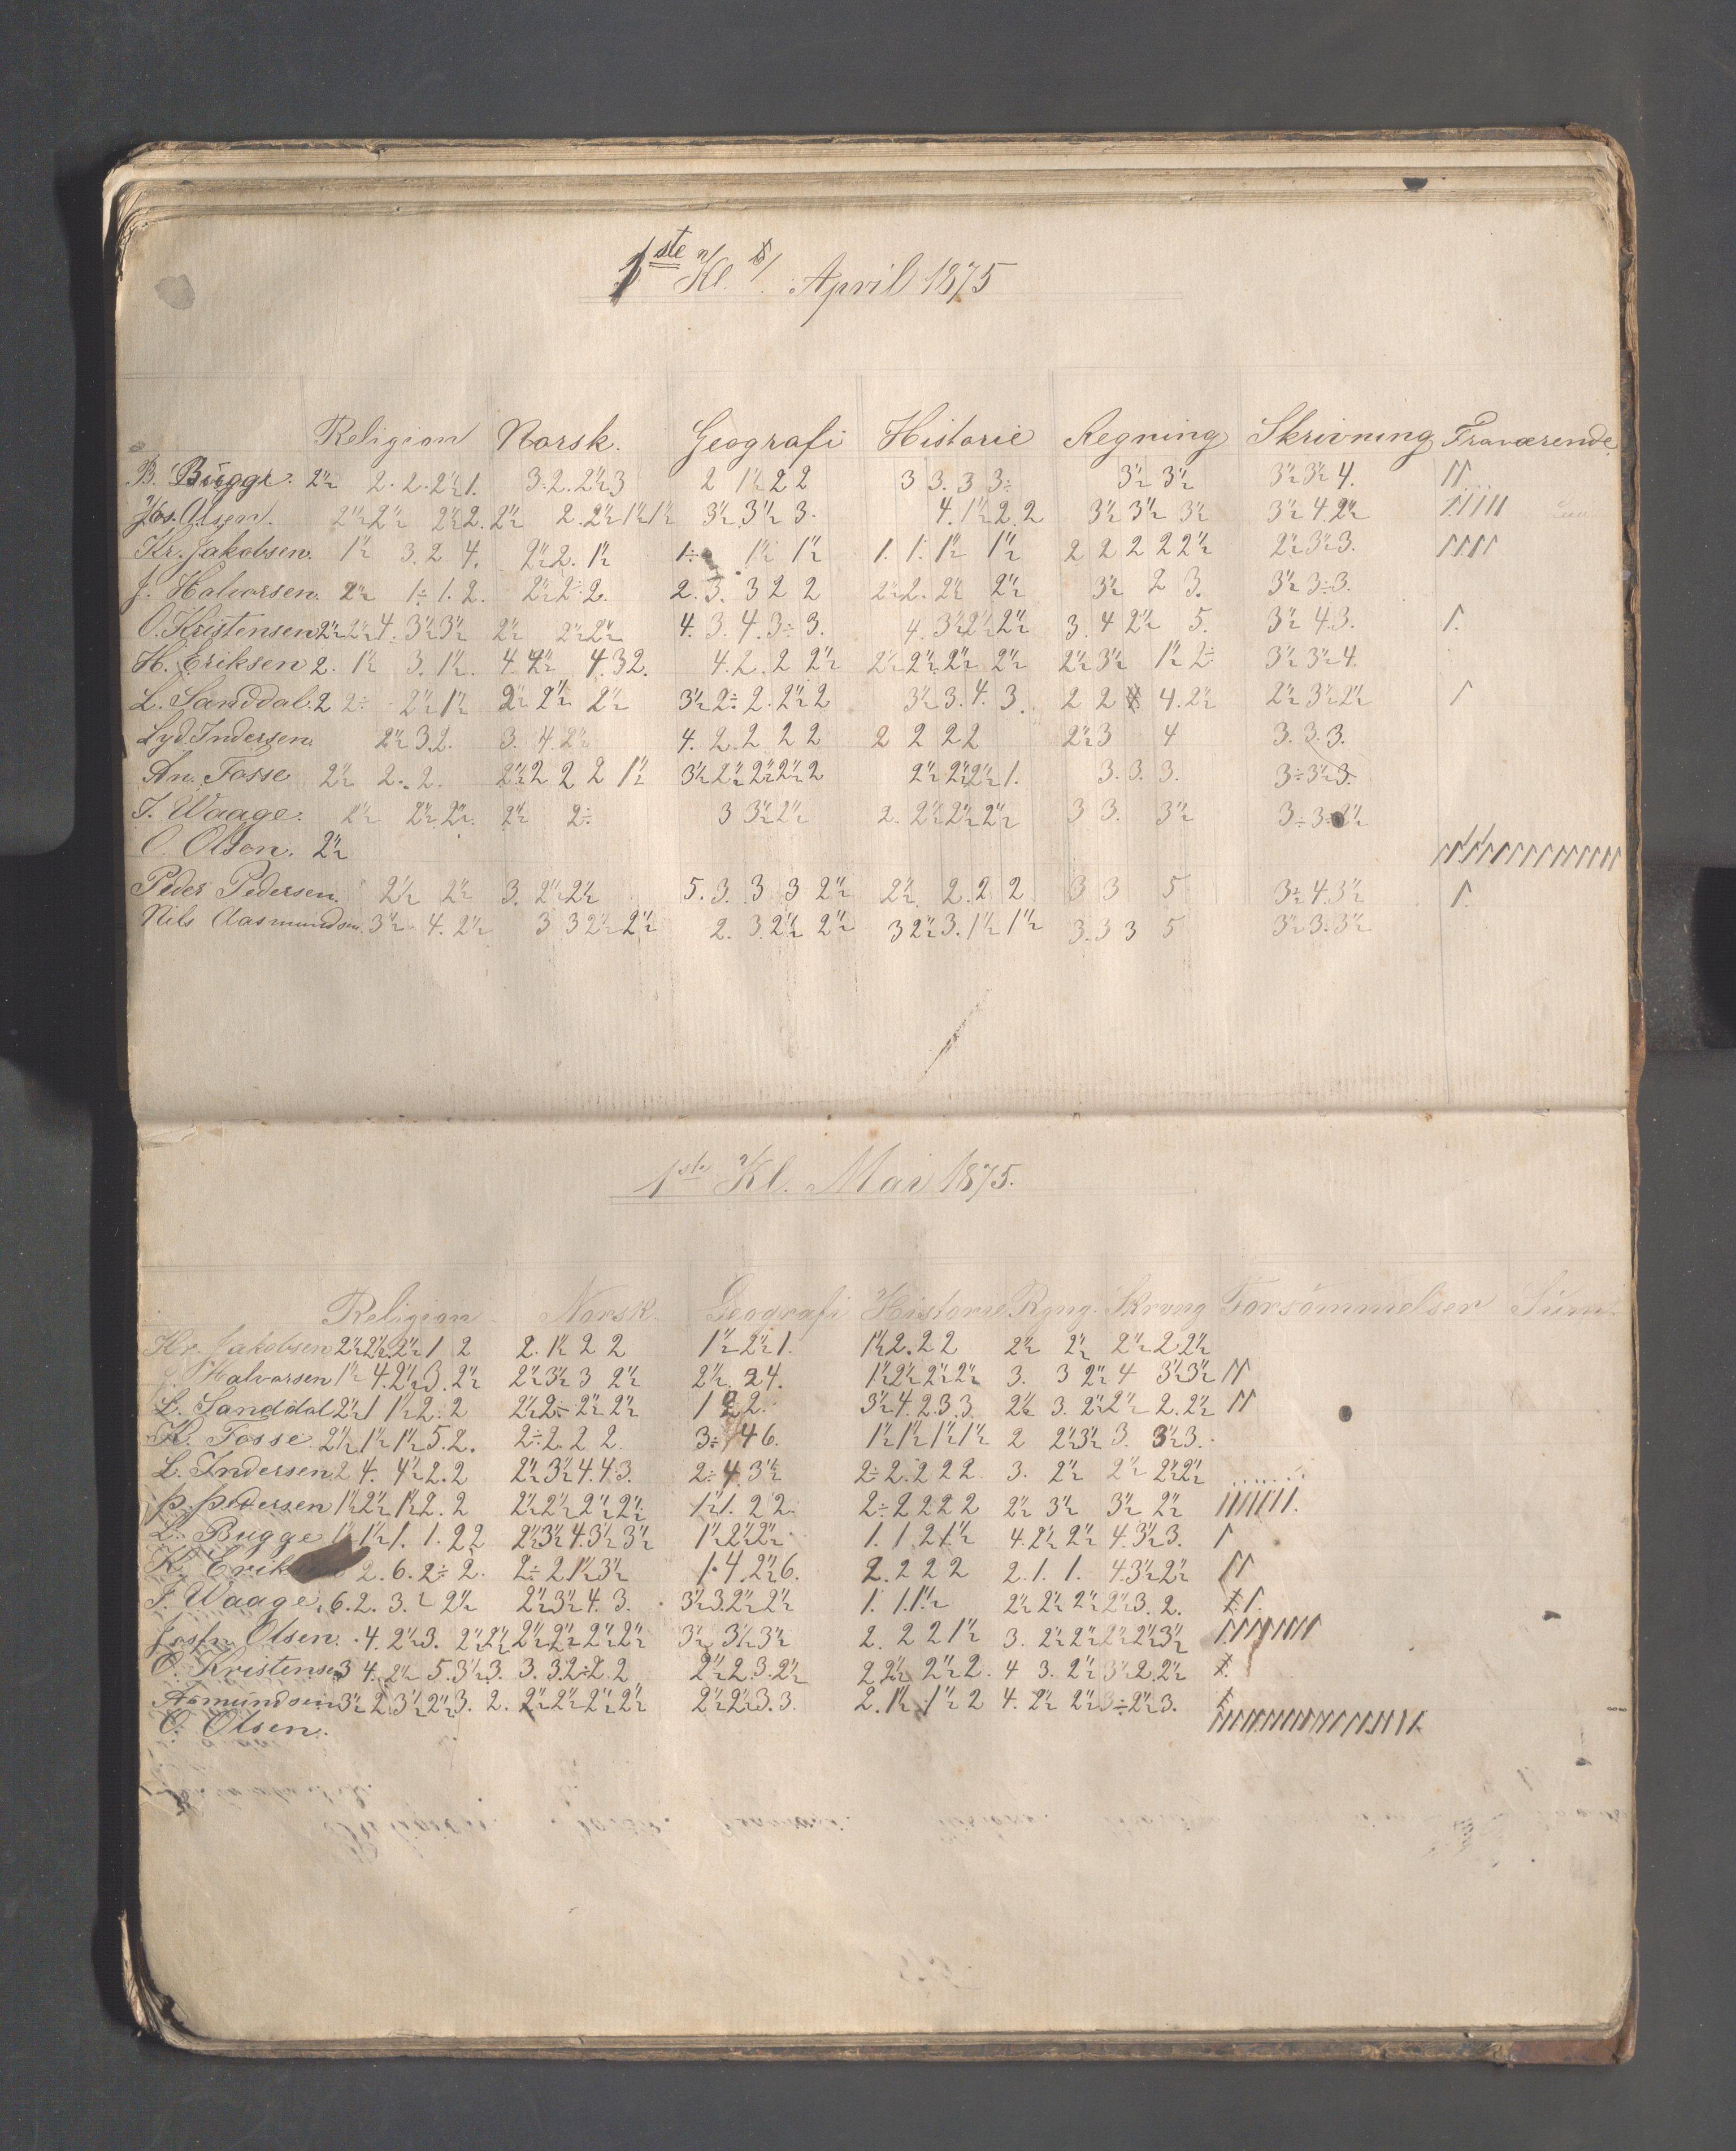 1ste Kl. April 1875
Religion Norsk. Geografi Historie Regning Skrivning Fraværende
B. Bugge. 2½ 2. 2. 2½ 1. 3. 2. 2½ 3 2 1½ 2 2 3 3. 3 3÷ 3½ 3½ 3½ 3½ 4.
Jos. Olsen. 2½ 2½ 2½ 2. 2½ 2. 2½ 1½ 1½ 3½ 3½ 3. 4. 1½ 2. 2 3½ 3½ 3½ 3½ 4. 2½
Kr. Jakobsen. 1½ 3. 2 4. 2½ 2. 1½ 1÷ 1½ 1½ 1. 1. 1½ 1½ 2 2 2 2 2½ 2½ 3½ 3.
J. Halvorsen. 2½ 1÷ 1. 2. 2½ 2÷ 2. 2. 3. 3 2 2 2½ 2. 2½ 2½ 3½ 2 3. 3½ 3÷ 3.
O. Kristensen 2½ 2½ 4. 3½ 3½ 2½ 2½ 2½ 4. 3. 4. 3÷ 3. 4. 3½ 2½ 2½ 3. 4 2½ 5. 3½ 4. 3.
H. Eriksen 2. 1½ 3. 1½. 4. 2½ 4. 3 2. 4. 2. 2 2½ 2½ 2½ 2½ 2½ 2½ 3½ 1½ 2÷ 3½ 3½ 4.
L. Sanddal. 2 2÷ 2½ 1½ 2½ 2½ 2½ 3½ 2÷ 2. 2½ 2 3½ 3. 4. 3. 2 2 4. 2½ 2½ 3½ 2½
Lyd. Indersen. 2½ 3 2. 3. 4. 2½ 4. 2. 2 2 2 2 2 2 2 2½ 3 4 3. 3. 3.
An. Fosse 2½ 2. 2. 2½ 2 2 2 1½ 3½ 2½ 2½ 2½ 2 2½ 2½ 2½ 1. 3. 3. 3. 3÷ 3½ 3.
T. Waage. 2½ 2½ 2½. 2½ 2÷ 3 3½ 2½ 2. 2½ 2½ 2½ 3 3. 3½ 3÷ 3÷ 2½
O. Olsen. 2½
Peder Pedersen. 2½ 2½ 3. 2½ 2½ 5. 3. 3 3 2½ 2½ 2. 2 2 3 3 5 3½ 4. 3½
Nils Aasmundsen. 3½ 4. 2½ 3 3 2½ 2½ 2. 3. 2½ 2½ 3 2½ 3. 1½ 1½ 3. 3 3 5 3½ 3. 3½
1ste Kl. Mai 1875.
Religion Norsk. Geografi Historie Rgng. Skrvng Forsömmelser Sum.
Kr. Jakobsen 2½ 2½ 2½ 1 2 2. 1½ 2 2 1½ 2½ 1. 1½ 2. 2 2 2½ 2½ 2½ 2 2½
Halvorsen 1½ 4. 2½ 3. 2½ 2½ 3½ 3 2½ 2½. 2 4. 1½ 2½ 2½ 2½ 3. 3 2½ 4 3½ 3½
L. Sanddal 2½ 1 1½ 2. 2 2½ 2÷ 2½ 2½ 1 2 2. 3½ 4. 2. 3 3. 2½ 3. 2½ 2½ 2. 2½
K. Fosse 2½ 1½ 1½ 5. 2. 2÷ 2. 2 2. 3÷ 4 6. 1½ 1½ 1½ 1½ 2 2½ 3½ 3. 3½ 3.
L. Indersen 2 4. 4½ 2. 2 2½ 3½ 4. 4. 3. 2÷ 4 3½ 2÷ 2. 2 2 2 3. 2½ 2½ 2½ 2½
P. Pedersen 1½ 2½ 1½ 2. 2 2½ 2½ 2½ 2½ 1½ 1. 2 2. 2÷ 2 2 2 2 2½ 3½ 3½ 2½
L. Bugge 1½ 1½ 1. 1. 2 2 2½ 3½ 4. 3½ 3½ 1½ 2½ 2½ 1. 1 2 1½ 4. 2½ 2½ 4. 3½ 3.
K. Erik 2. 6. 2÷ 2. 2÷ 2 1½ 3½ 1. 4. 2½ 6. 2. 2 2 2 2. 1. 1. 4. 3½ 2½
T. Waage. 6. 2. 3. 2½ 2½ 3½ 4. 3. 3½ 3. 2½ 2½ 1. 1. 1½ 2½ 2½ 2½ 2½ 3. 2.
Olsen. 4. 2½ 3. 2½ 2½ 2½ 2½ 2½ 2½ 3½ 3½ 3½ 2. 2 2 1½ 3. 2½ 2½ 2½ 2½ 3½
O. Kristensen 3 4. 2½ 5. 3½ 3. 3. 3. 2÷ 2. 2 2½ 2. 3. 2½ 2 2½ 2½ 2. 4 3. 2½ 3½ 2. 2½
Asmundsen 3½ 2. 3½ 2½ 3. 2. 2½ 2½ 2½ 2½ 2½ 2½ 3. 3. 2. 1½ 1½ 2 4. 2½ 2½ 3÷ 2½ 3.
O. Olsen.